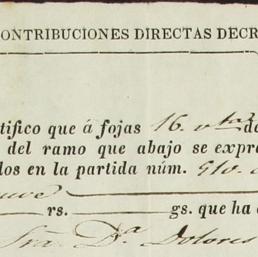 ONTRIBUCIONES DIRECTAS DECR
tifico que á fojas 16. vtas de
del ramo que abajo se expre
dos en la partida núm. 910.
rs. gs. que ha
Sra. Dª Dolores